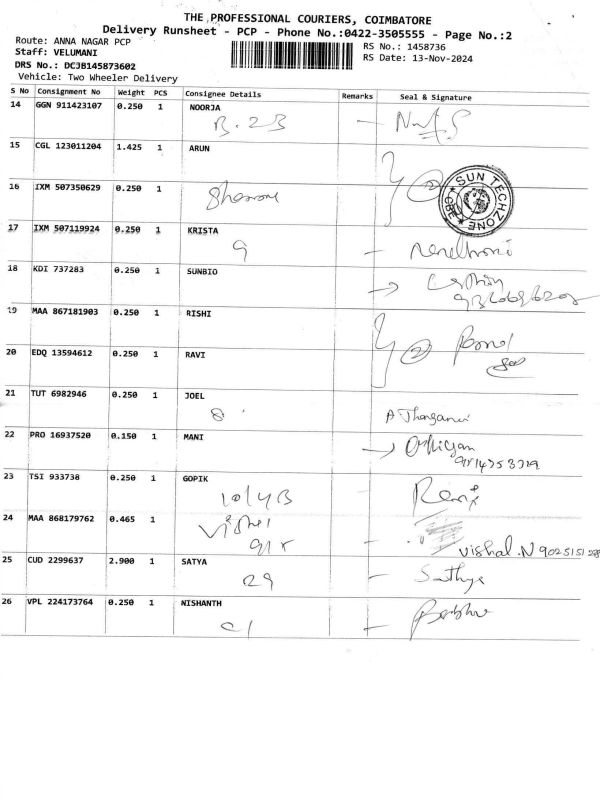 THE PROFESSIONAL COURIERS, COIMBATORE
Delivery Runsheet - PCP - Phone No.:0422-3505555 - Page No.:2
Route: ANNA NAGAR PCP
RS No.: 1458736
Staff: VELUMANI
RS Date: 13-Nov-2024
DRS No.: DCJB145873602
Vehicle: Two Wheeler Delivery
S No Consignment No Weight PCS Consignee Details Remarks Seal & Signature
14 GGN 911423107 0.250 1 NOORJA
B.23
15 CGL 123011204 1.425 1 ARUN
SUN TECHZONE
CBE
2
16 IXM 507350629 0.250 1
17 IXM 507119924 0.250 1 KRISTA
9
18 KDI 737283 0.250 1 SUNBIO
19 MAA 867181903 0.250 1 RISHI
2
20 EDQ 13594612 0.250 1 RAVI
21 TUT 6982946 0.250 1 JOEL
8
22 PRO 16937520 0.150 1 MANI
23 TSI 933738 0.250 1 GOPIK
10/4B
24 MAA 868179762 0.465 1
Vishal.N
25 CUD 2299637 2.900 1 SATYA
29
Sathya
26 VPL 224173764 0.250 1 NISHANTH
C1